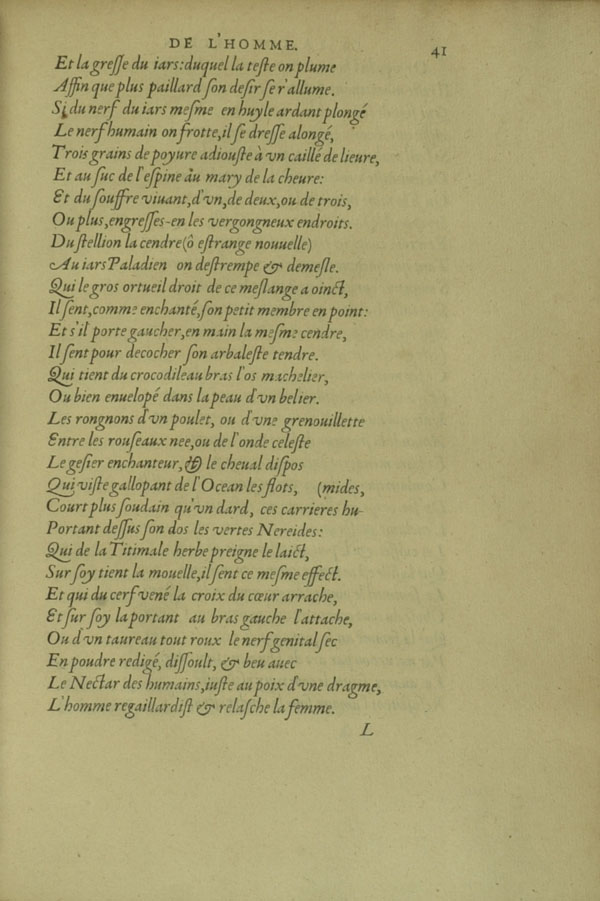 DE L'HOMME. 41
Et la greſſe du iars:duquel la teſte on plume
Affin que plus paillard ſon deſir ſe r'allume.
Si du nerf du iars meſme en huyle ardant plongé
Le nerf humain on frotte,il ſe dreſſe alongé,
Trois grains de poyure adiouſte à vn caillé de lieure,
Et au ſuc de l'eſpine au mary de la cheure:
Et du ſouffre viuant,d'vn,de deux,ou de trois,
Ou plus,engreſſes-en les vergongneux endroits.
Du ſtellion la cendre(ô eſtrange nouuelle)
Au iars Paladien on deſtrempe & demeſle.
Qui le gros ortueil droit de ce meſlange a oinct,
Il ſent,comme enchanté,ſon petit membre en point:
Et s'il porte gaucher,en main la meſme cendre,
Il ſent pour decocher ſon arbaleſte tendre.
Qui tient du crocodileau bras l'os machelier,
Ou bien enuelopé dans la peau d'vn belier.
Les rongnons d'vn poulet, ou d'vne grenouillette
Entre les rouſeaux nee,ou de l'onde celeſte
Le geſier enchanteur, & le cheual diſpos
Qui viſte gallopant de l'Ocean les flots, (mides,
Court plus ſoudain qu'vn dard, ces carrieres hu-
Portant deſſus ſon dos les vertes Nereides:
Qui de la Titimale herbe preigne le laict,
Sur ſoy tient la mouelle,il ſent ce meſme effect.
Et qui du cerf vené la croix du cœur arrache,
Et ſur ſoy la portant au bras gauche l'attache,
Ou d'vn taureau tout roux le nerf genital ſec
En poudre redigé, diſſoult, & beu auec
Le Nectar des humains,iuſte au poix d'vne dragme,
L'homme regaillardiſt & relaſche la femme.
L